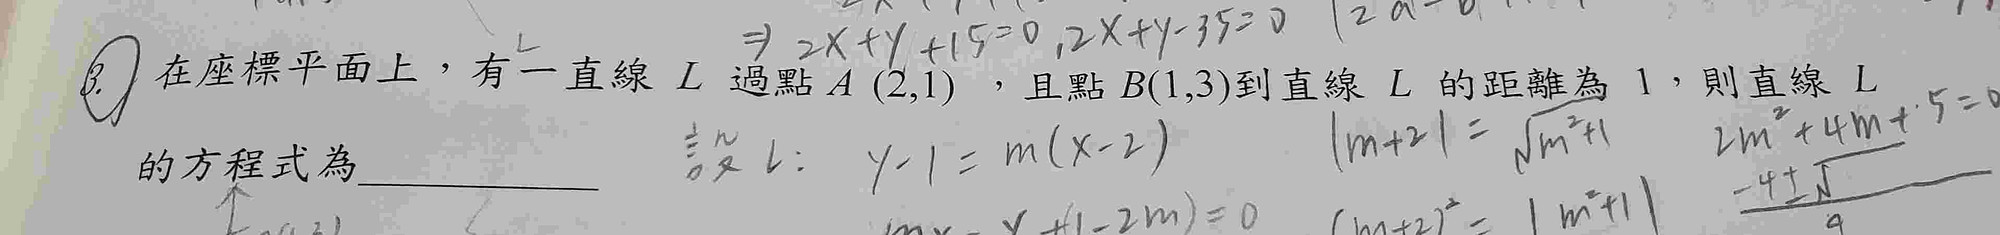 ⇒ 2x+y+15=0, 2x+y-35=0
3. 在座標平面上，有一直線 L 過點 A (2,1) ，且點 B(1,3)到直線 L 的距離為 1，則直線 L
的方程式為____________
設 L: y-1=m(x-2)
|m+2|=√m²+1
2m²+4m+5=0
-4±√
(m+2)²=|m²+1|